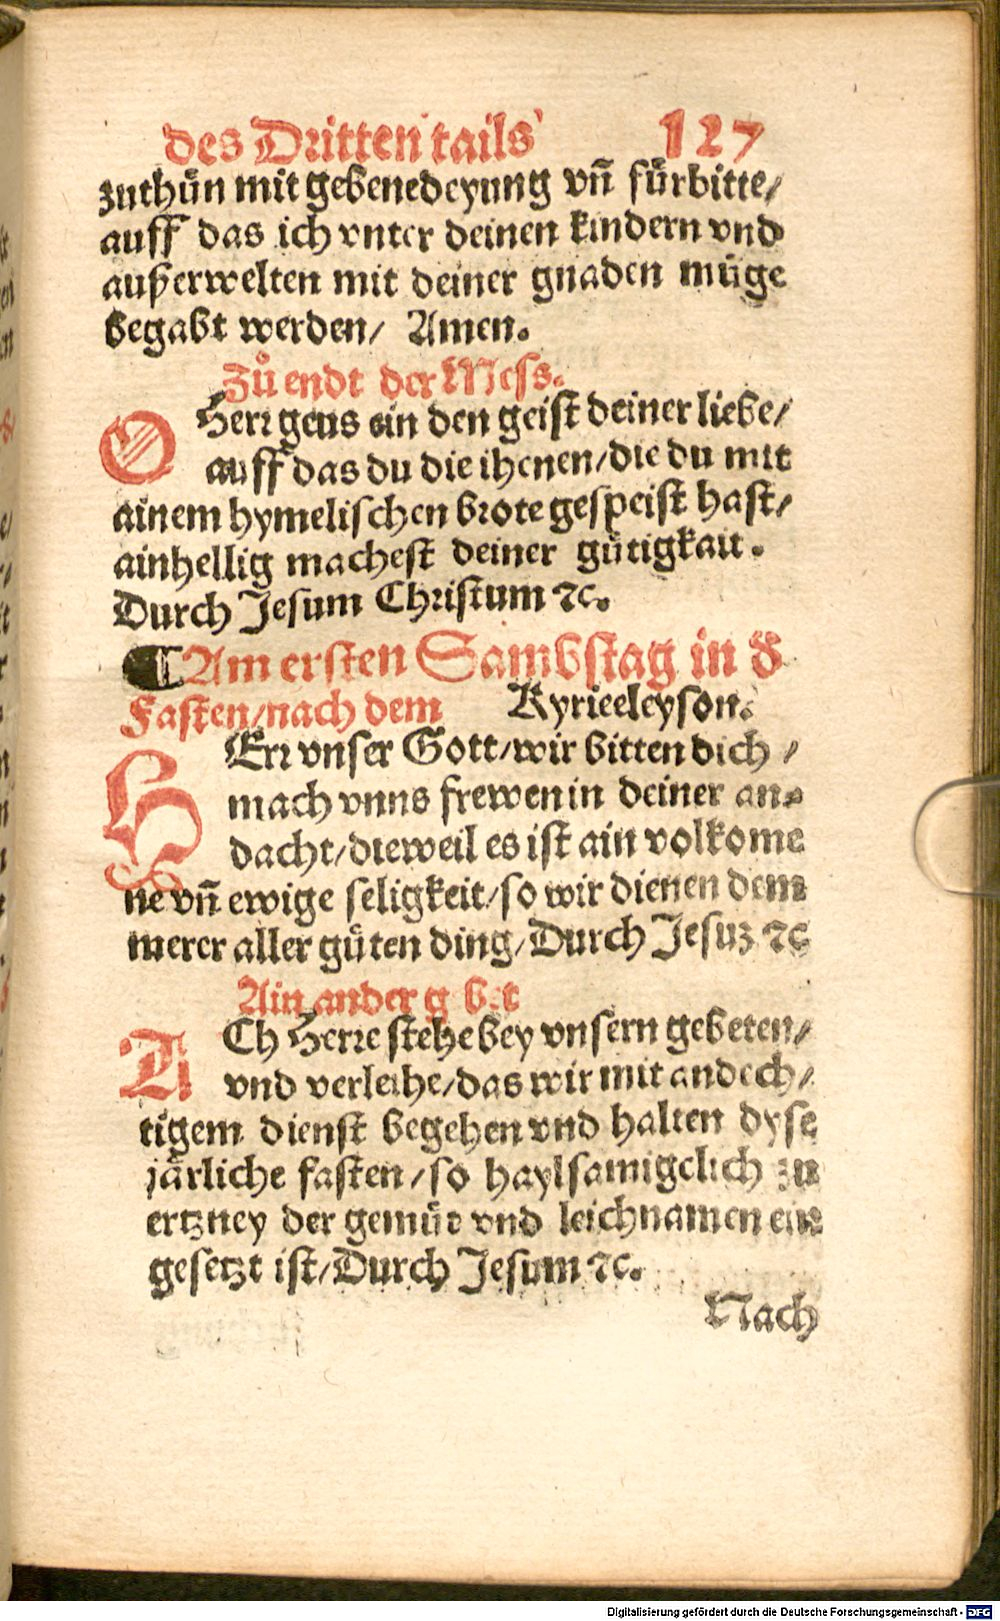 des Dritten tails 127
zuthůn mit gebenedeyung vñ fürbitte/
auff das ich vnter deinen kindern vnd
außerwelten mit deiner gnaden müge
begabt werden/ Amen.
Zů endt der Mess.
O Herr geus ein den geist deiner liebe/
auff das du die ihenen/die du mit
ainem hymelischen brote gespeist hast/
ainhellig machest deiner gütigkait.
Durch Jesum Christum ⁊c.
¶ Am ersten Sambstag in d̕
Fasten/nach dem Kyrieeleyson.
HErr vnser Gott/wir bitten dich /
mach vnns frewen in deiner an⸗
dacht/dieweil es ist ain volkome
ne vñ ewige seligkeit/so wir dienen dem
merer aller güten ding/Durch Jesuz ⁊c
Ain ander g bet
ACh Herre stehe bey vnsern gebeten/
vnd verleihe/das wir mit andech/
tigem dienst begehen vnd halten dyse
järliche fasten/so haylsamigclich zu
ertzney der gemüt vnd leichnamen ein
gesetzt ist/Durch Jesum ⁊c.
Nach
Digitalisierung gefördert durch die Deutsche Forschungsgemeinschaft - DFG